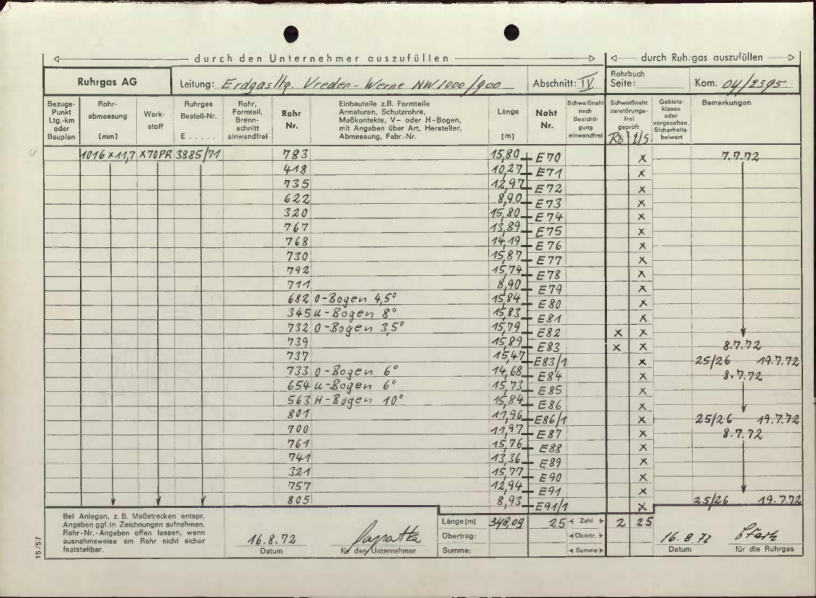 durch den Unternehmer auszufüllen durch Ruhrgas auszufüllen
Ruhrgas AG Leitung: Erdgasltg. Vreden - Werne NW 1000/900 Abschnitt: IV Rohrbuch Seite: Kom. 04/2395
Bezugs-Punkt Ltg.-km oder Bauplan Rohr-abmessung (mm) Werk-stoff Ruhrgas Bestell-Nr. E ..... Rohr, Formteil, Brenn-schnitt einwandfrei Rohr Nr. Einbauteile z.B. Formteile Armaturen, Schutzrohre, Meßkontakte, V- oder H-Bogen, mit Angaben über Art, Hersteller, Abmessung, Fabr.-Nr. Länge [m] Naht Nr. Schweißnaht nach Besichti-gung einwandfrei Schweißnaht zerstörungs-frei geprüft Rö U/S Gebiets-klasse oder vorgesehen. Sicherheits-beiwert Bemerkungen
1016 x 11,7 X70PR 3885/71 783 15,80 E70 x 7.7.72
418 10,27 E71 x
735 12,97 E72 x
622 8,90 E73 x
320 15,80 E74 x
767 13,89 E75 x
768 14,19 E76 x
730 15,87 E77 x
792 15,74 E78 x
711 8,90 E79 x
682 O-Bogen 4,5° 15,84 E80 x
345 U-Bogen 8° 15,83 E81 x
732 O-Bogen 3,5° 15,79 E82 x x
739 15,89 E83 x x 8.7.72
737 15,47 E83/1 x 25/26 19.7.72
733 O-Bogen 6° 14,68 E84 x 8.7.72
654 U-Bogen 6° 15,73 E85 x
563 H-Bogen 10° 15,84 E86 x
801 11,96 E86/1 x 25/26 19.7.72
700 11,97 E87 x 8.7.72
761 15,76 E88 x
741 13,36 E89 x
321 15,77 E90 x
757 12,94 E91 x
805 8,93 E91/1 x 25/26 19.7.72
Bei Anlagen, z.B. Meßstrecken entspr. Angaben ggf. in Zeichnungen aufnehmen. Rohr-Nr.-Angaben offen lassen, wenn ausnahmsweise am Rohr nicht sicher feststellbar.
16.8.72 Datum für den Unternehmer
Länge [m] 348,09 25 Zahl 2 25
Übertrag: Übertr.
Summe: Summe
16.8.72 Datum für die Ruhrgas
15/57